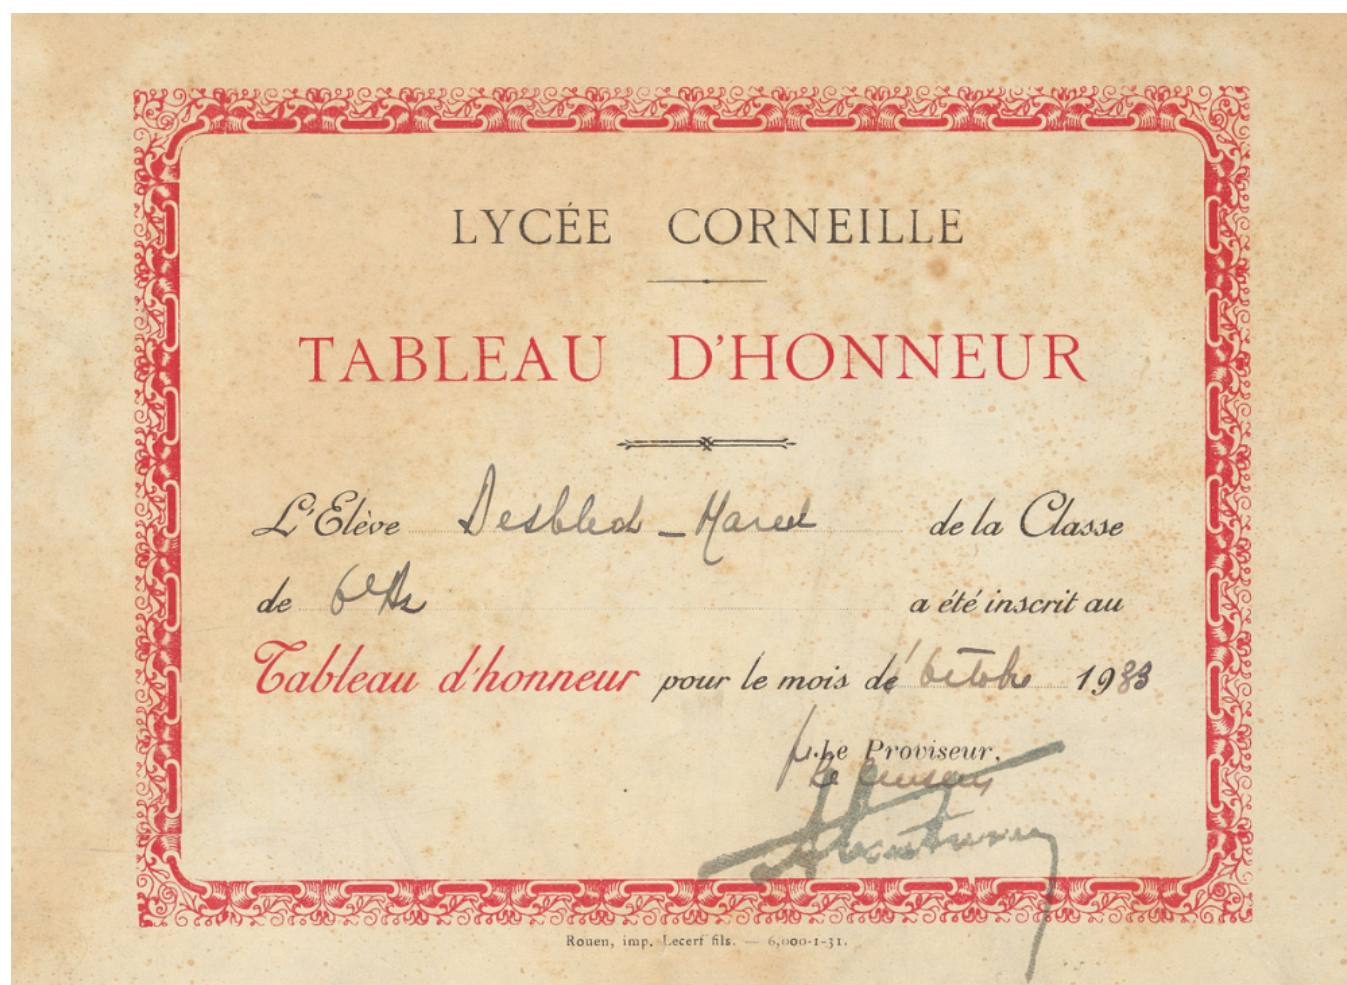 LYCÉE CORNEILLE
TABLEAU D'HONNEUR
L'Elève Desbled - Marcel de la Classe
de 6e A2 a été inscrit au
Tableau d'honneur pour le mois de Octobre 1933
p. Le Proviseur,
Le Censeur
Rouen, imp. Lecerf fils. — 6,000-1-31.